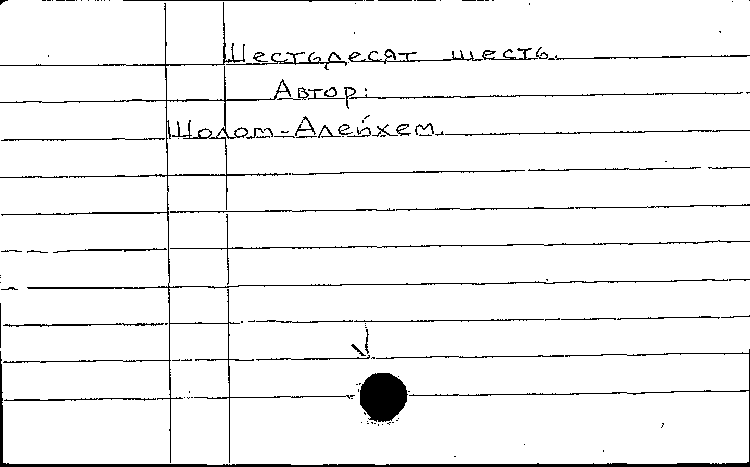 Шестьдесят шесть.
Автор:
Шолом-Алейхем.